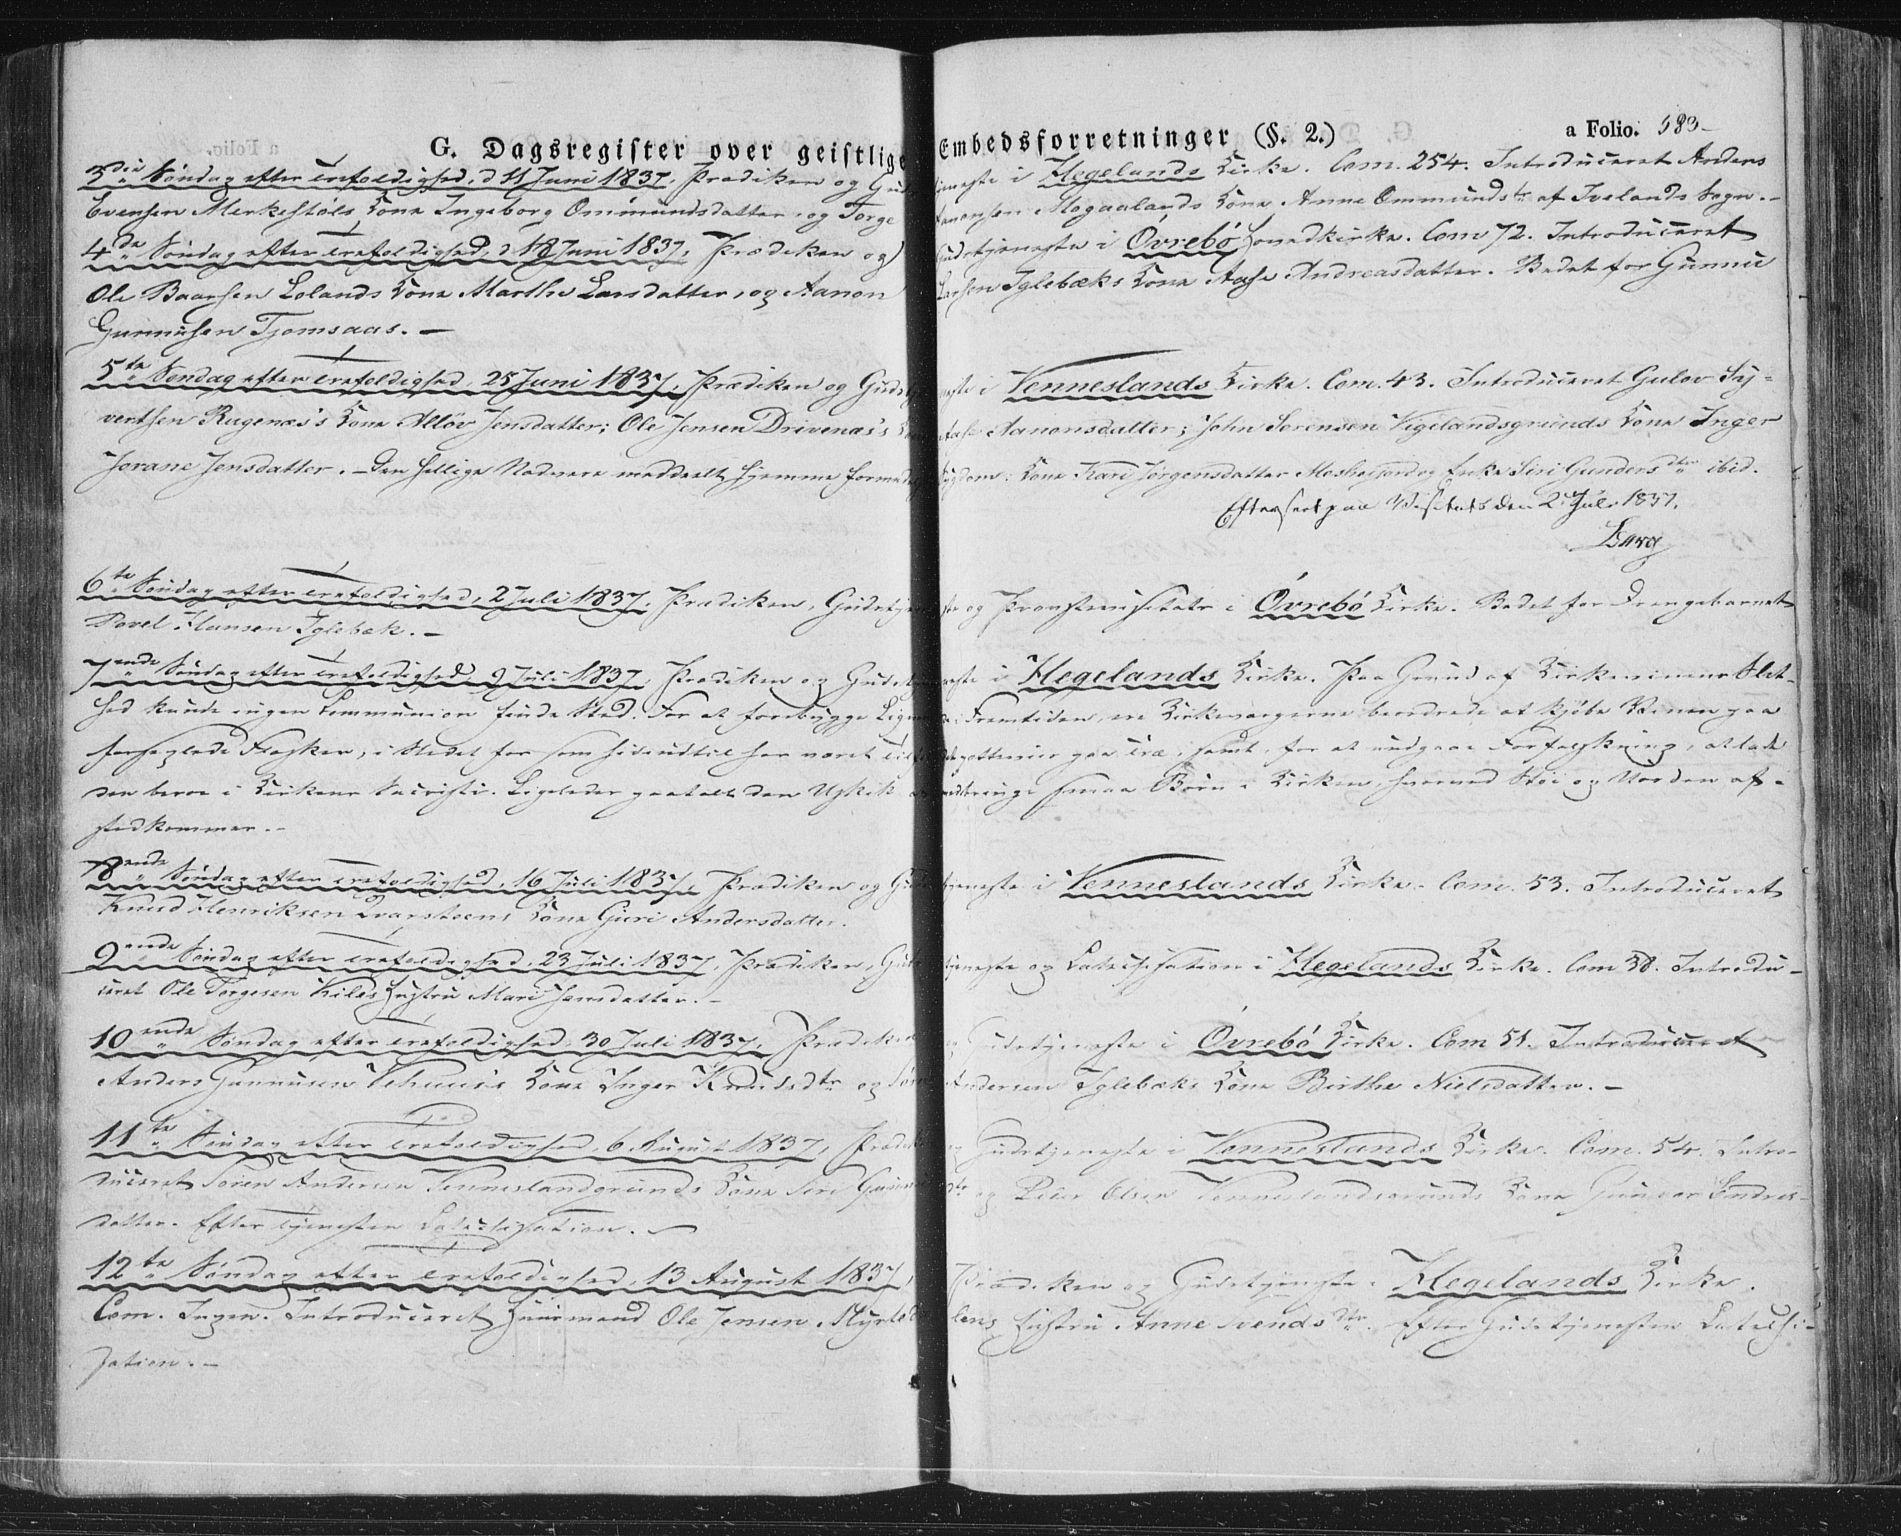 G. Dagsregister over geistlige Embedsforretninger (§. 2.) a Folio. 583
3die Søndag efter Trefoldighed, d 11 Juni 1837, Prædiken og Gudstjeneste i Hegelands Kirke. Com. 254. Introduceret Anders
Evensen Merkestøls Kone Ingeborg Ommundsdatter, og Torge Aanonsen Mogaalands Kone Anne Ommundsdtr af Ivelands Sogn. -
4de Søndag efter Trefoldighed, d 18 Juni 1837, Prædiken og Gudstjeneste i Øvrebø Hovedkirke. Com 72. Introduceret
Ole Baarsen Lolands Kone Marthe Larsdatter, og Aanon Larsen Iglebæks Kone Aase Andreasdatter. Bedet for Gunnu
Gunnusen Tjomsaas. -
5te Søndag efter Trefoldighed, 25 Juni 1837, Prædiken og Gudstjeneste i Venneslands Kirke. Com. 43. Introduceret Gulov Sy-
vertsen Rugenæs's Kone Alløv Jensdatter; Ole Jensen Drivenæs's Kone Aase Aanonsdatter; John Sørensen Vigelandsgrunds Kone Inger
Jorane Jensdatter. - Den hellige Nadvere meddeelt hjemme formedelst Sygdom: Kone Kari Jørgensdatter og Enke Siri Gundersdtr ibid.
Efterseet paa Visitats den 2 Juli 1837.
6te Søndag efter Trefoldighed, 2 Juli 1837. Prædiken, Gudstjeneste og Provstevisitats i Øvrebø Kirke. Bedet for Drengebarnet
Povel Hansen Iglebæk. -
7ende Søndag efter Trefoldighed, 9 Juli 1837. Prædiken og Gudstjeneste i Hegelands Kirke. Paa Grund af Kirkevinens Slet-
hed kunde ingen Communion finde Sted. For at forebygge Lignende i Fremtiden, ere Kirkeværgerne beordrede at kjøbe Vinen paa
forseglede Flasker, i Stedet for som hidindtil har været Tilfældet paa Træ, samt, for at undgaae Forfalskning, at lade
den beroe i Kirkens Sacristi. Ligeledes paatalt den Uskik at medbringe smaa Børn i Kirken, hvorved Støi og Uorden af-
stedkommer. -
8ende Søndag efter Trefoldighed, 16 Juli 1837, Prædiken og Gudstjeneste i Venneslands Kirke. Com. 53. Introduceret
Knud Henriksen Qvarsteens Kone Guri Andersdatter.
9ende Søndag efter Trefoldighed, 23 Juli 1837, Prædiken, Gudstjeneste og Catechisation i Hegelands Kirke. Com 38. Introdu-
ceret Ole Torgesen Kiles Hustru Mari Jensdatter. -
10ende Søndag efter Trefoldighed, 30 Juli 1837, Prædiken og Gudstjeneste i Øvrebø Kirke. Com 51. Introduceret
Anders Gunnusen Kone Inger Knudsdtr og Søren Andersen Iglebæks Kone Birthe Nielsdatter. -
11te Søndag efter Trefoldighed, 6 August 1837, Prædiken og Gudstjeneste i Venneslands Kirke. Com. 54. Intro-
duceret Søren Andersen Venneslandgrunds Kone Siri og Peder Olsen Venneslandsgrunds Kone Gunvor Endres-
datter. Efter Tjenesten Catechisation. -
12te Søndag efter Trefoldighed, 13 August 1837, Prædiken og Gudstjeneste i Hegelands Kirke.
Com. Ingen. Introduceret Huusmand Ole Jensen Hustru Anne Svendsdtr. Efter Gudstjenesten Catechi-
sation. -